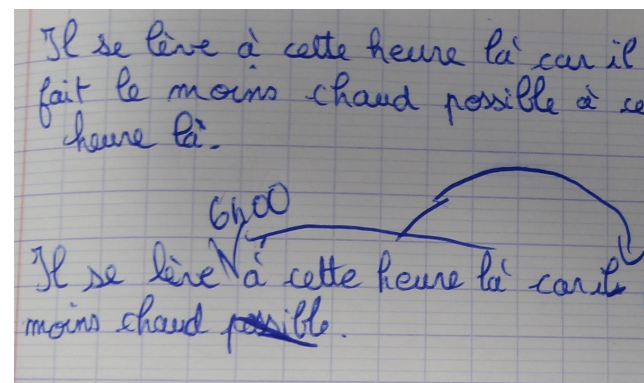 Il se lève à cette heure là car il
fait le moins chaud possible à ce
heure là.
6h00
Il se lève à cette heure là car il
moins chaud possible.